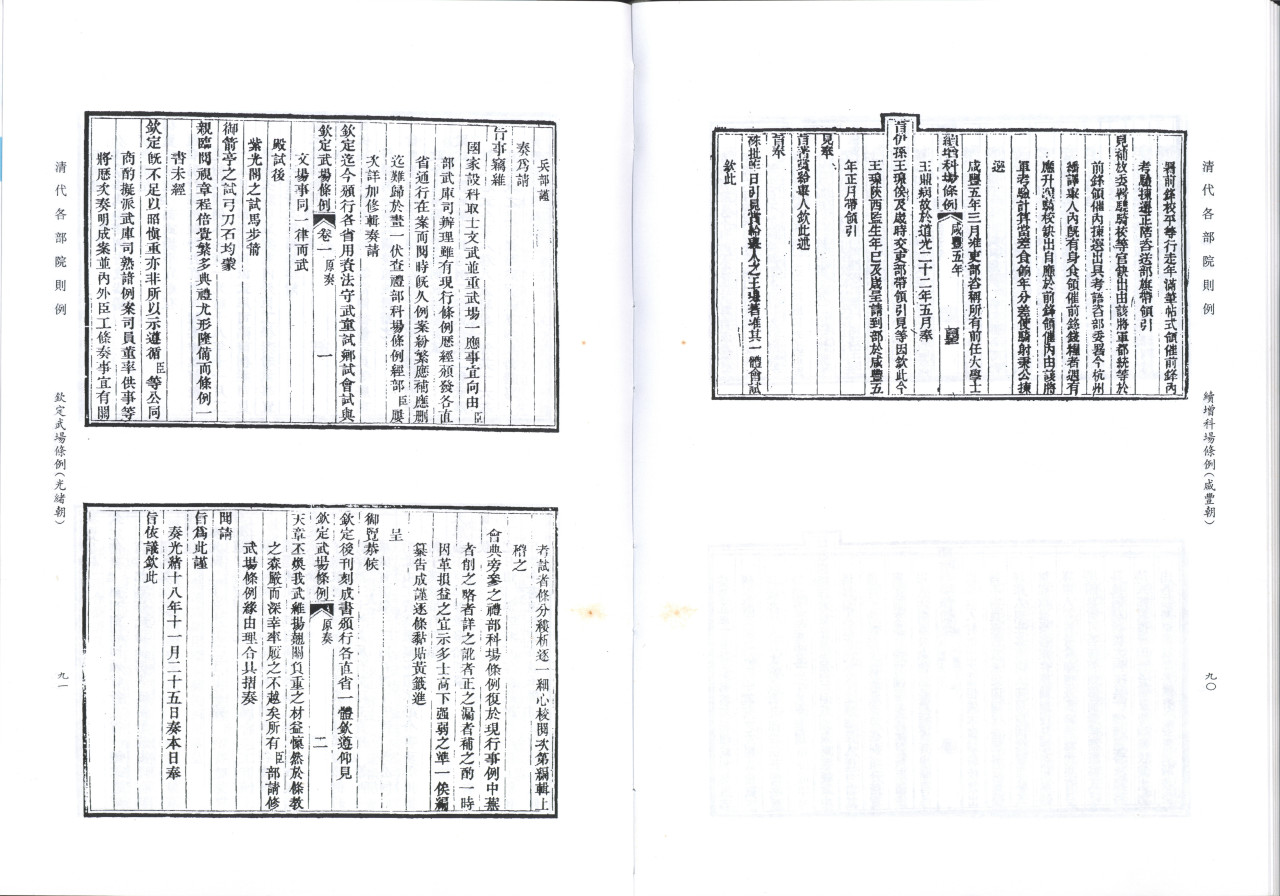 清代各部院則例
續增科場條例(咸豐朝)
九〇
署前鋒校平等行走年滿筆帖式領催前鋒內
考驗揀選正陪咨送部旗帶領引
見補放委署驍騎校等官缺出由該將軍都統等於
前鋒領催內揀選出具考語咨部委署今杭州
繙譯舉人內既有身食領催前鋒錢糧者遇有
應升驍騎校缺出自應於前鋒領催內由該將
軍考驗計算當差食餉年分差使騎射秉公揀
選
續增科場條例
咸豐五年
咸豐五年三月准吏部咨稱所有前任大學士
王鼎病故於道光二十二年五月奉
旨伊孫王珮俟及歲時交吏部帶領引見等因欽此今
王珮陝西監生年已及歲呈請到部於咸豐五
年正月帶領引
見奉
旨著賞給舉人欽此述
旨奉
硃批昨日引見賞給舉人之王珮著准其一體會試
欽此
兵部謹
奏為請
旨事竊維
國家設科取士文武並重武場一應事宜向由臣
部武庫司辦理雖有現行條例歷經頒發各直
省通行在案而閱時既久例案紛繁應補應刪
迄難歸於畫一伏查禮部科場條例經部臣屢
次詳加修輯奏請
欽定迄今頒行各省用資法守武童試鄉試會試與
欽定武場條例
卷一
原奏
一
文場事同一律而武
殿試後
紫光閣之試馬步箭
御箭亭之試弓刀石均蒙
親臨閱視章程倍貴繁多典禮尤形隆備而條例一
書未經
欽定既不足以昭慎重亦非所以示遵循臣等公同
商酌擬派武庫司熟諳例案司員董率供事等
將歷次奏明成案並內外臣工條奏事宜有關
考試者條分縷析逐一細心校閱次第編輯上
稽之
會典旁參之禮部科場條例復於現行事例中舊
者創之略者詳之訛者正之漏者補之酌一時
因革損益之宜示多士高下强弱之準一俟編
纂告成謹逐條黏貼黃籤進
呈
御覽恭候
欽定後刊刻成書頒行各直省一體欽遵仰見
欽定武場條例
原奏
二
天章丕煥我武維揚翹關負重之材益懍然於條教
之森嚴而深幸率履之不越矣所有臣部請修
武場條例緣由理合具摺奏
聞請
旨為此謹
奏光緒十八年十一月二十五日奏本日奉
旨依議欽此
清代各部院則例
欽定武場條例(光緒朝)
九一